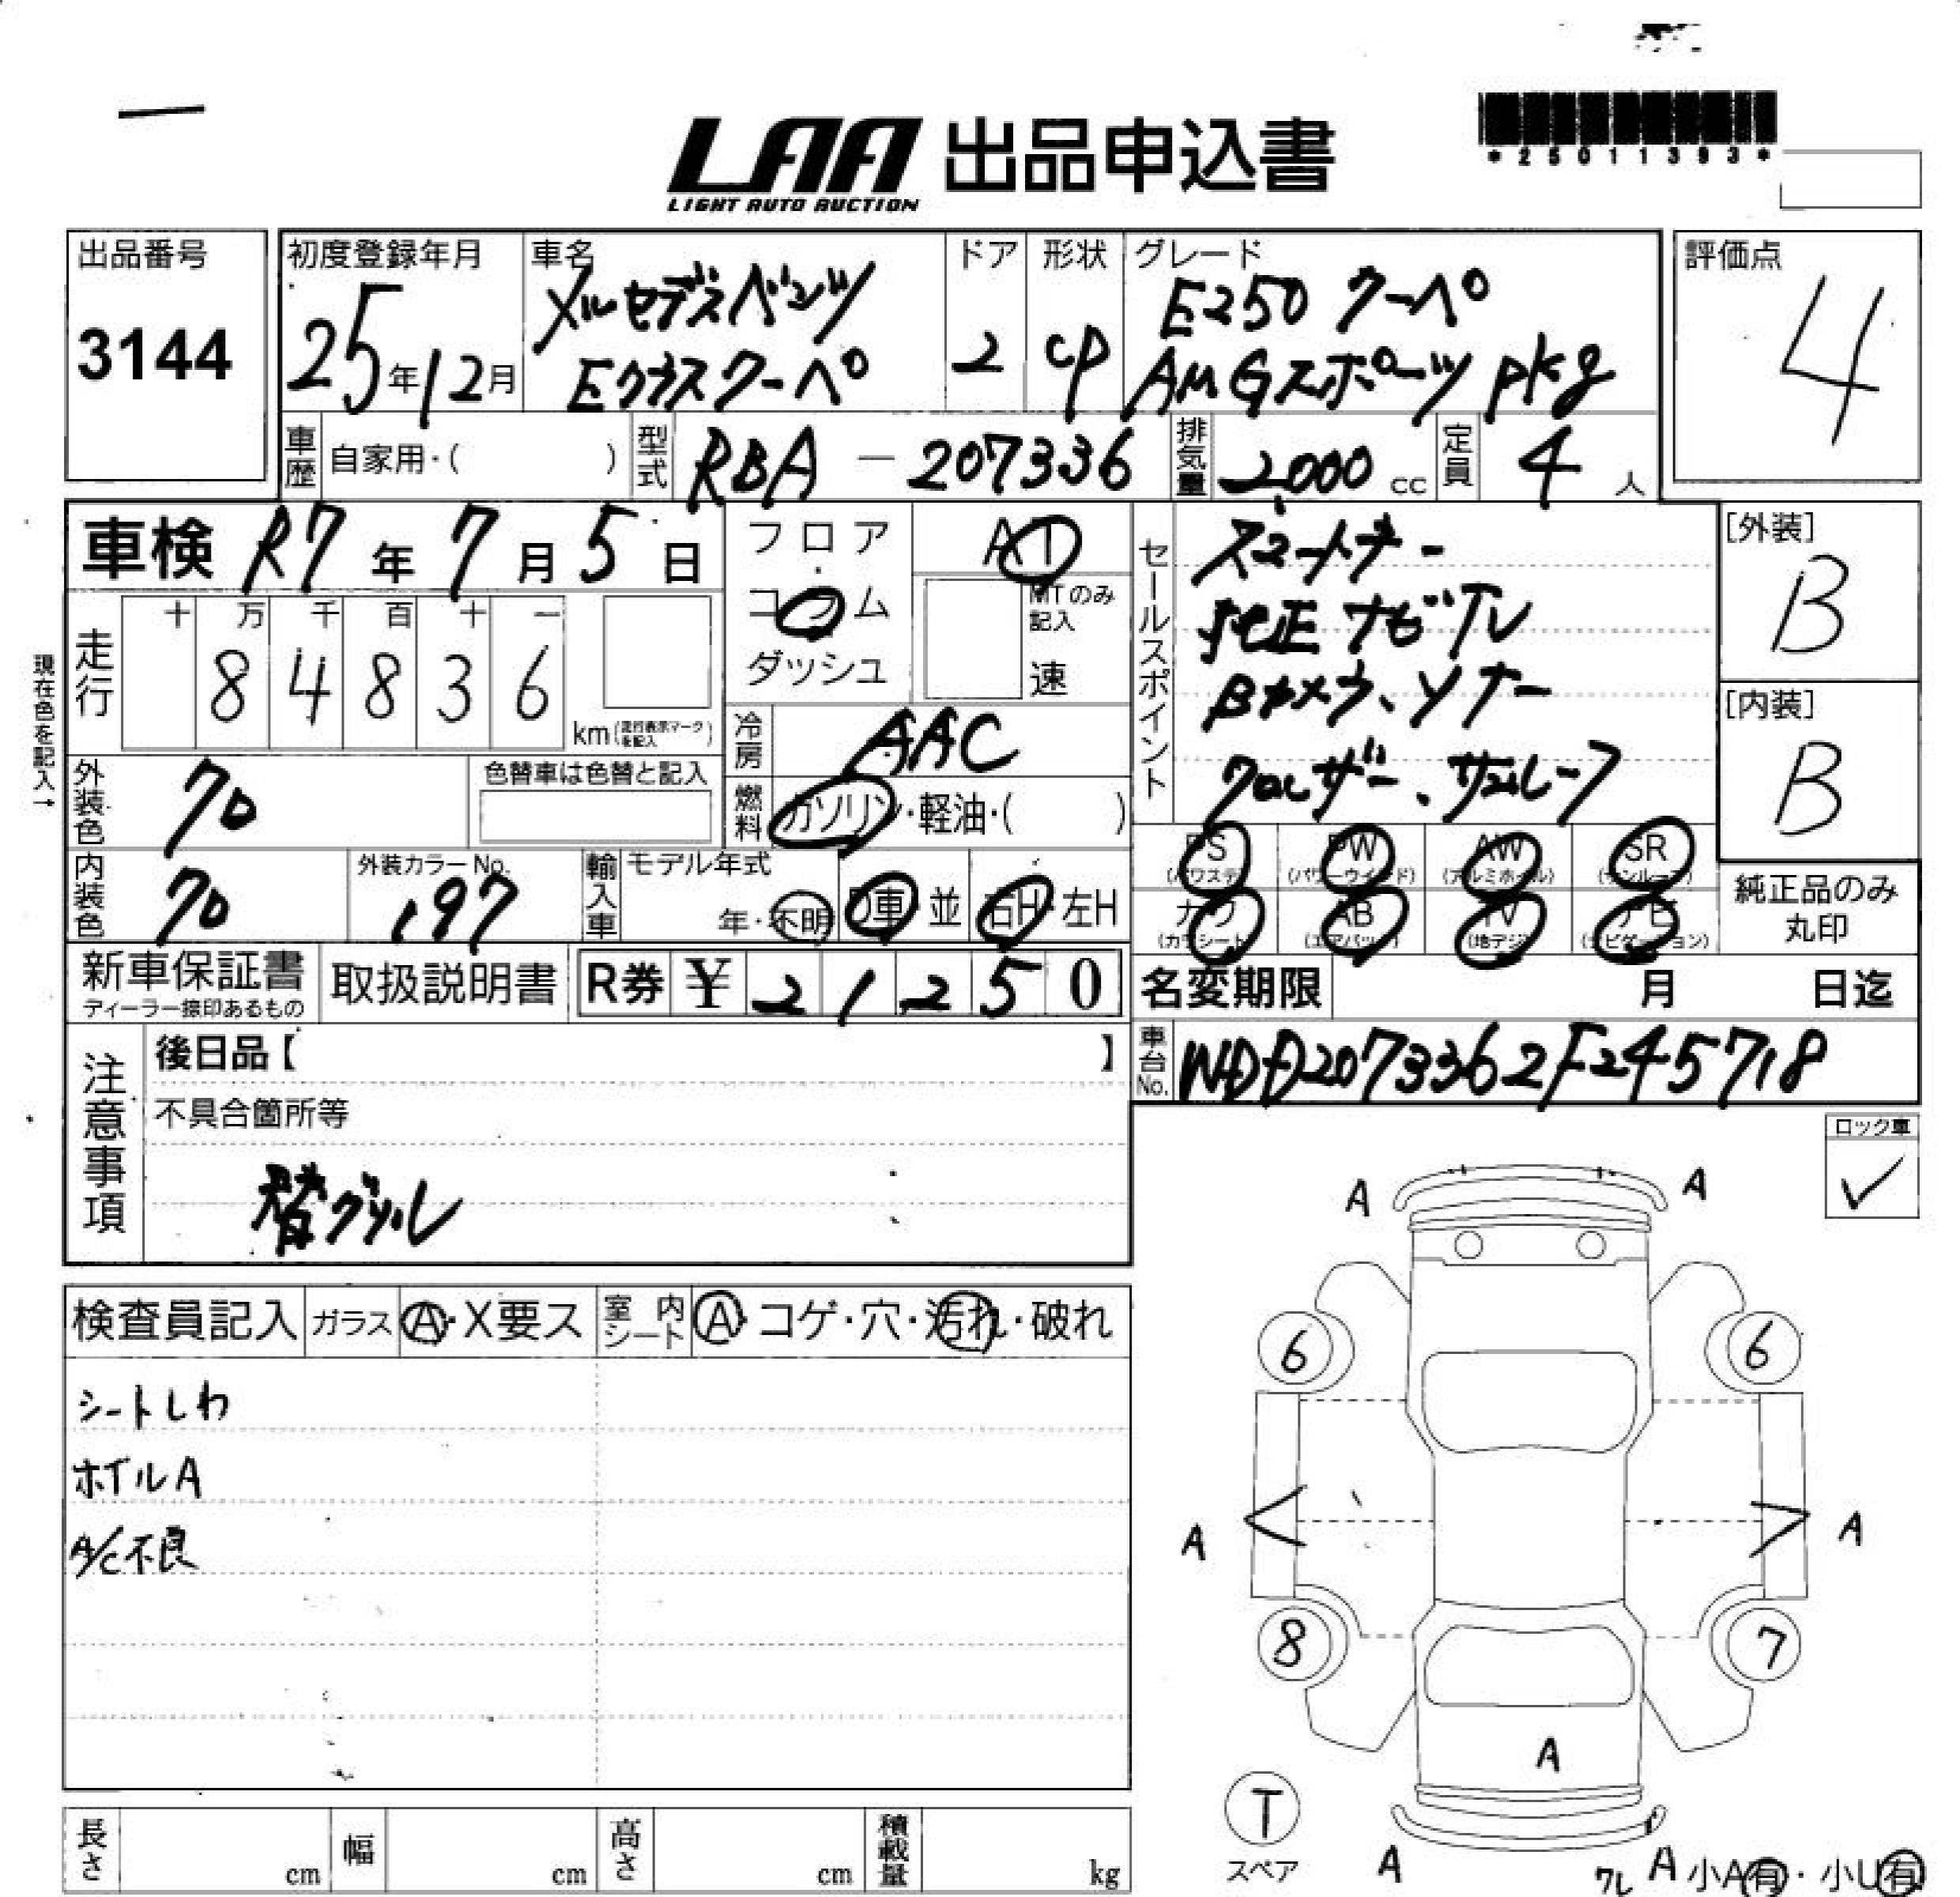 LAA 出品申込書
LIGHT AUTO AUCTION
*25011393*
出品番号
3144
初度登録年月
25年12月
車名
メルセデスベンツ
Eクラスクーペ
ドア
2
形状
CP
グレード
E250 クーペ
AMGスポーツpkg
評価点
4
車歴 自家用・( )
型式 RBA - 207336
排気量 2,000 cc
定員 4 人
車検 R7年7月5日
フロア
コラム
ダッシュ
AT
MTのみ記入
速
セールスポイント
スマートキー
純正ナビTV
Bカメラ、ソナー
クロレザー、サンルーフ
[外装]
B
[内装]
B
現在色を記入→
走行
十 万 千 百 十 一
8 4 8 3 6
km(走行表示マークを記入)
冷房 AAC
外装色 クロ
色替車は色替と記入
燃料 ガソリン・軽油・( )
内装色 クロ
外装カラーNo.
197
輸入車 モデル年式
年・不明 D車 並 右H・左H
PS (パワステ) PW (パワーウインド) AW (アルミホイル) SR (サンルーフ)
カワ (カワシート) AB (エアバック) TV (地デジ) ナビ (ナビゲーション)
純正品のみ
丸印
新車保証書
ディーラー捺印あるもの
取扱説明書
R券 ¥ 2 1 2 5 0
名変期限 月 日迄
車台No. WDD2073362F245718
注意事項
後日品【 】
不具合箇所等
替グリル
ロック車
✓
検査員記入 ガラス A・X要ス 室内シート A・コゲ・穴・汚れ・破れ
シートしわ
ホイルA
A/C不良
A A
6 6
A A
8 7
A
T
スペア
A
ワレ A 小A有・小U有
長さ cm 幅 cm 高さ cm 積載量 kg